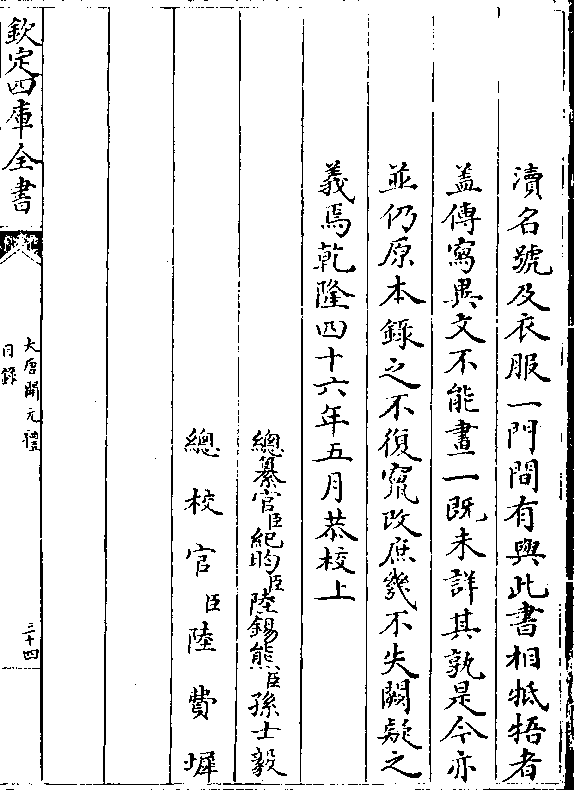 瀆名號及衣服一門間有與此書相牴牾者
蓋傳寫異文不能畫一既未詳其孰是今亦
並仍原本録之不復竄改庶幾不失闕疑之
義焉乾隆四十六年五月恭校上
總纂官臣紀昀臣陸錫熊臣孫士毅
總校官臣陸費墀
欽定四庫全書
大唐開元禮
目録
三十四